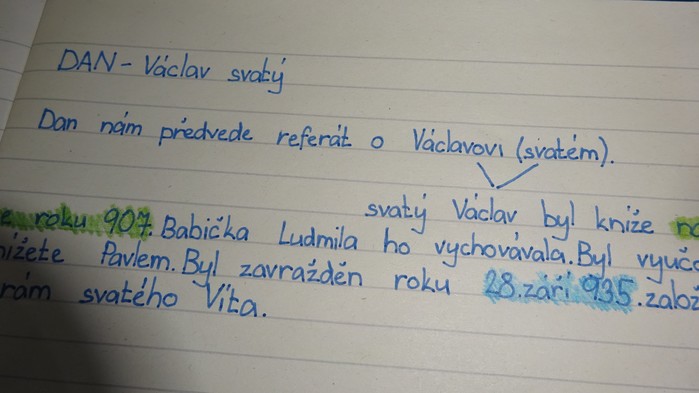 DAN - Václav svatý
Dan nám předvede referát o Václavovi (svatém).
svatý Václav byl kníže
roku 907. Babička Ludmila ho vychovávala. Byl
Pavlem. Byl zavražděn roku 28. září 935.
svatého Víta.